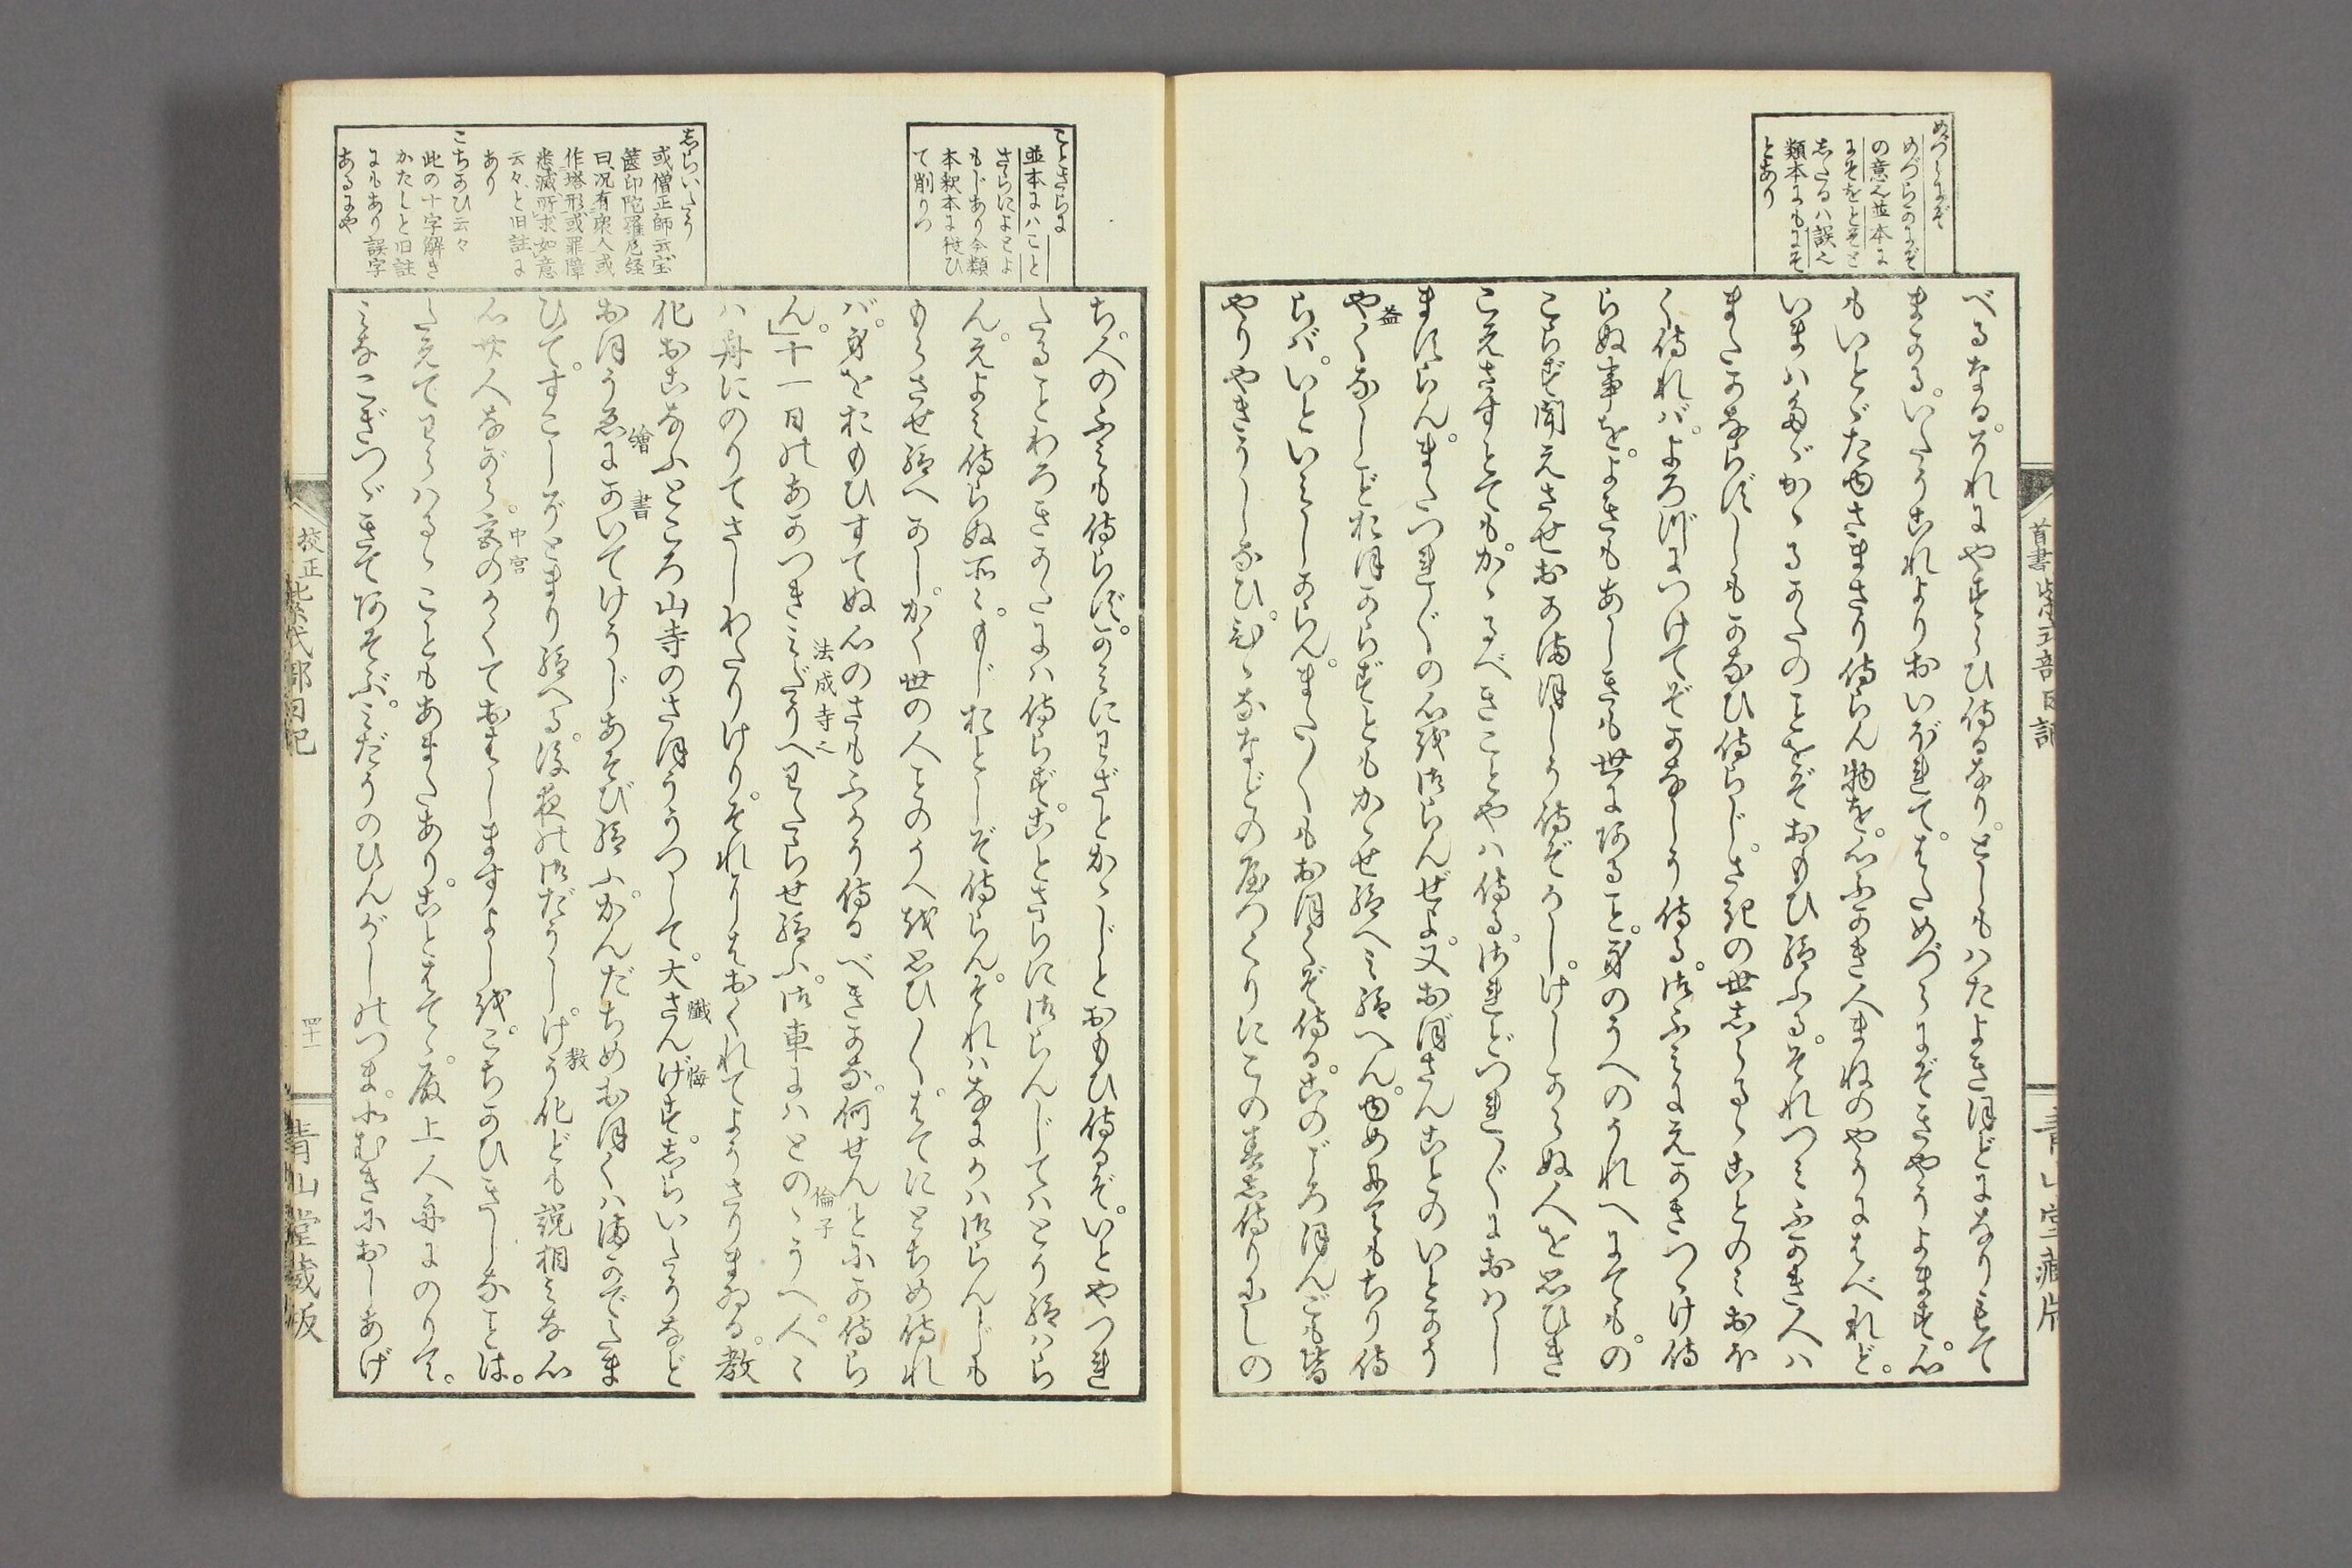 めづらにぞ
めづらかにぞ
の意也並本に
にそをとそと
志たるハ誤也
類本にもにそ
とあり
べるなる。それにやすらひ侍るなり。としもハたよきほどになりもて
まかる。いたうこれよりおいぼれて。はためづらにぞきやうよまず。心
もいとゞたゆさまさり侍らん物を。心ふかき人まねのやうにはべれど。
いまハたゞかゝるかたのことをぞおもひ給ふる。それつミふかき人ハ
またかならずしもかなひ侍らじ。さきの世志らるゝことのミおほ
く侍れバ。よろづにつけてぞかなしう侍る。御ふミにえかきつゞけ侍
らぬ事を。よきもあしきも世にあること。身のうへのうれへにても。の
こらず聞えさせおかまほしう侍ぞかし。けしからぬ人を思ひき
こえさすとても。かゝるべきことやハ侍る。されどつれ〴〵におハし
ますらん。またつれ〴〵の心を御らんぜよ。又おぼさんことのいとかう
やくなしごとおほからずともかゝせ給へミ給へん。ゆめにてもちり侍
益
らバ。いといミしからん。また〳〵もおほくぞ侍る。このごろほんごも皆
やりやきうしなひ。ひゝななどの屋づくりにこの春志侍りにしの
首書紫式部日記
青山堂蔵版
ことさらに
並本にハこと
さらによとよ
もじあり今類
本釈本に従ひ
て削りつ
志らいたう
或僧正師云宝
篋印陀羅尼経
曰况有衆人或
作塔形或罪障
悉滅所求如意
云々と旧註に
あり
こちかひ云々
此の十字解き
かたしと旧註
にもあり誤字
あるにや
ち。人のふミも侍らず。かミにわざとかゝじとおもひ侍るぞ。いとやつれ
たることわろきかたにハ侍らず。ことさらに御らんじてハとう給ハら
ん。えよミ侍らぬ所〻。もじおとしぞ侍らん。それハなにかハ御らんじも
もらさせ給へかし。かく世の人ごとのうへを思ひ〳〵。はてにとぢめ侍れ
バ。身をおもひすてぬ心のさもふかう侍るべきかな。何せんとにか侍ら
ん。」十一日のあかつきミだうへわたらせ給ふ。御車にハとのゝうへ。人〻
法成寺也
倫子
ハ舟にのりてさしわたりけり。それにはおくれてようさりまゐる。教
化おこなふところ山寺のさほううつして。大さんげす。志らいたうなど
懺 悔
おほうゑにかいてけうじあそび給ふ。かんだちめおほくハまかでたま
繪 書
ひて。すこしぞとまり給へる。後夜の御だうし。けう化ども説相ミな心
教
〻廿人ながら。宮のかくておはしますよしを。こちかひきしなことは。
中宮
たえてわらハるゝこともあまたあり。ことはてゝ。殿上人舟にのりて。
ミなこぎつゞきてあそぶ。ミだうのひんがしのつま。北むきにおしあげ
校正紫式部日記
四十一
青山堂蔵版